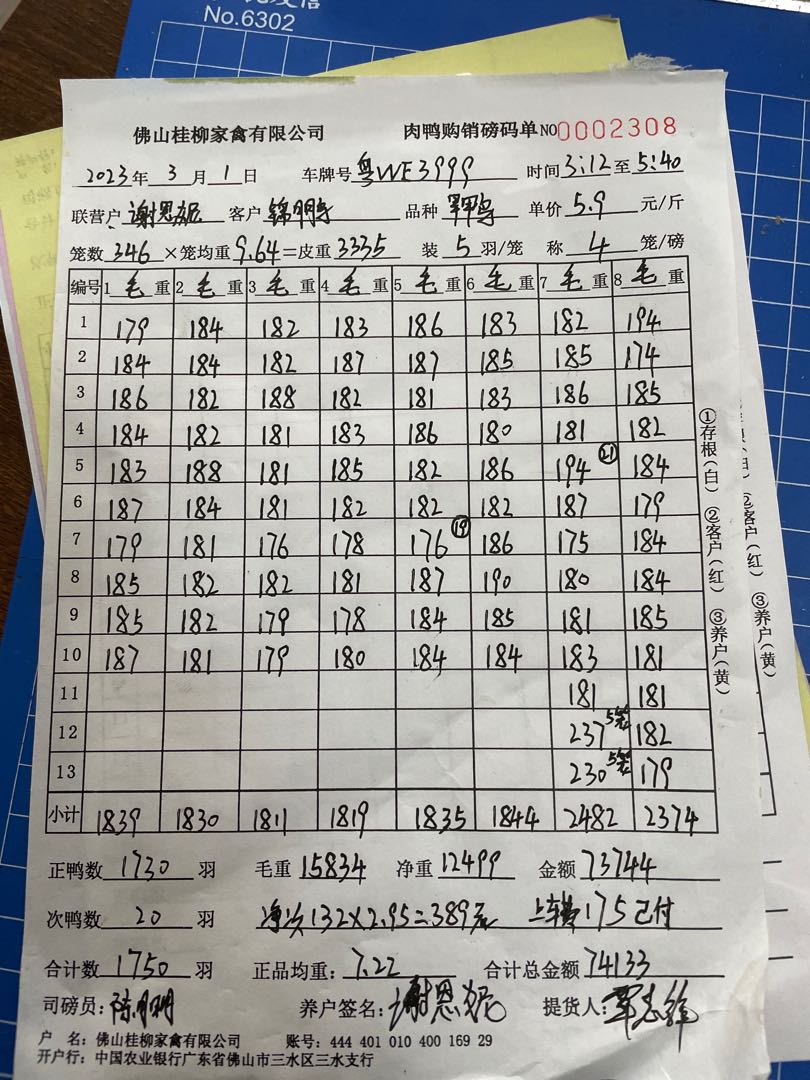 No.6302
佛山桂柳家禽有限公司 肉鸭购销磅码单 NO0002308
2023年3月1日 车牌号粤WE3999 时间3:12至5:40
联营户谢恩妮 客户锦明 品种 单价5.9元/斤
笼数346×笼均重9.64=皮重3335 装5羽/笼 称4笼/磅
编号 1毛重 2毛重 3毛重 4毛重 5毛重 6毛重 7毛重 8毛重
1 179 184 182 183 186 183 182 194
2 184 184 182 187 187 185 185 174
3 186 182 188 182 181 183 186 185
4 184 182 181 183 186 180 181 182
5 183 188 181 185 182 186 194 ㉑ 184
6 187 184 181 182 182 182 187 179
7 179 181 176 178 176 ⑲ 186 175 184
8 185 182 182 181 187 190 180 184
9 185 182 179 178 184 185 181 185
10 187 181 179 180 184 184 183 181
11 181 181
12 237 5笼 182
13 230 5笼 179
小计 1839 1830 1811 1819 1835 1844 2482 2374
正鸭数1730羽 毛重15834 净重12499 金额73744
次鸭数20羽 净次132×2.95=389元 上车费175已付
合计数1750羽 正品均重:7.22 合计总金额74133
司磅员: 养户签名:谢恩妮 提货人:
户 名:佛山桂柳家禽有限公司 账号:444 401 010 400 169 29
开户行:中国农业银行广东省佛山市三水区三水支行
①存根(白) ②客户(红) ③养户(黄)
②客户(红) ③养户(黄)